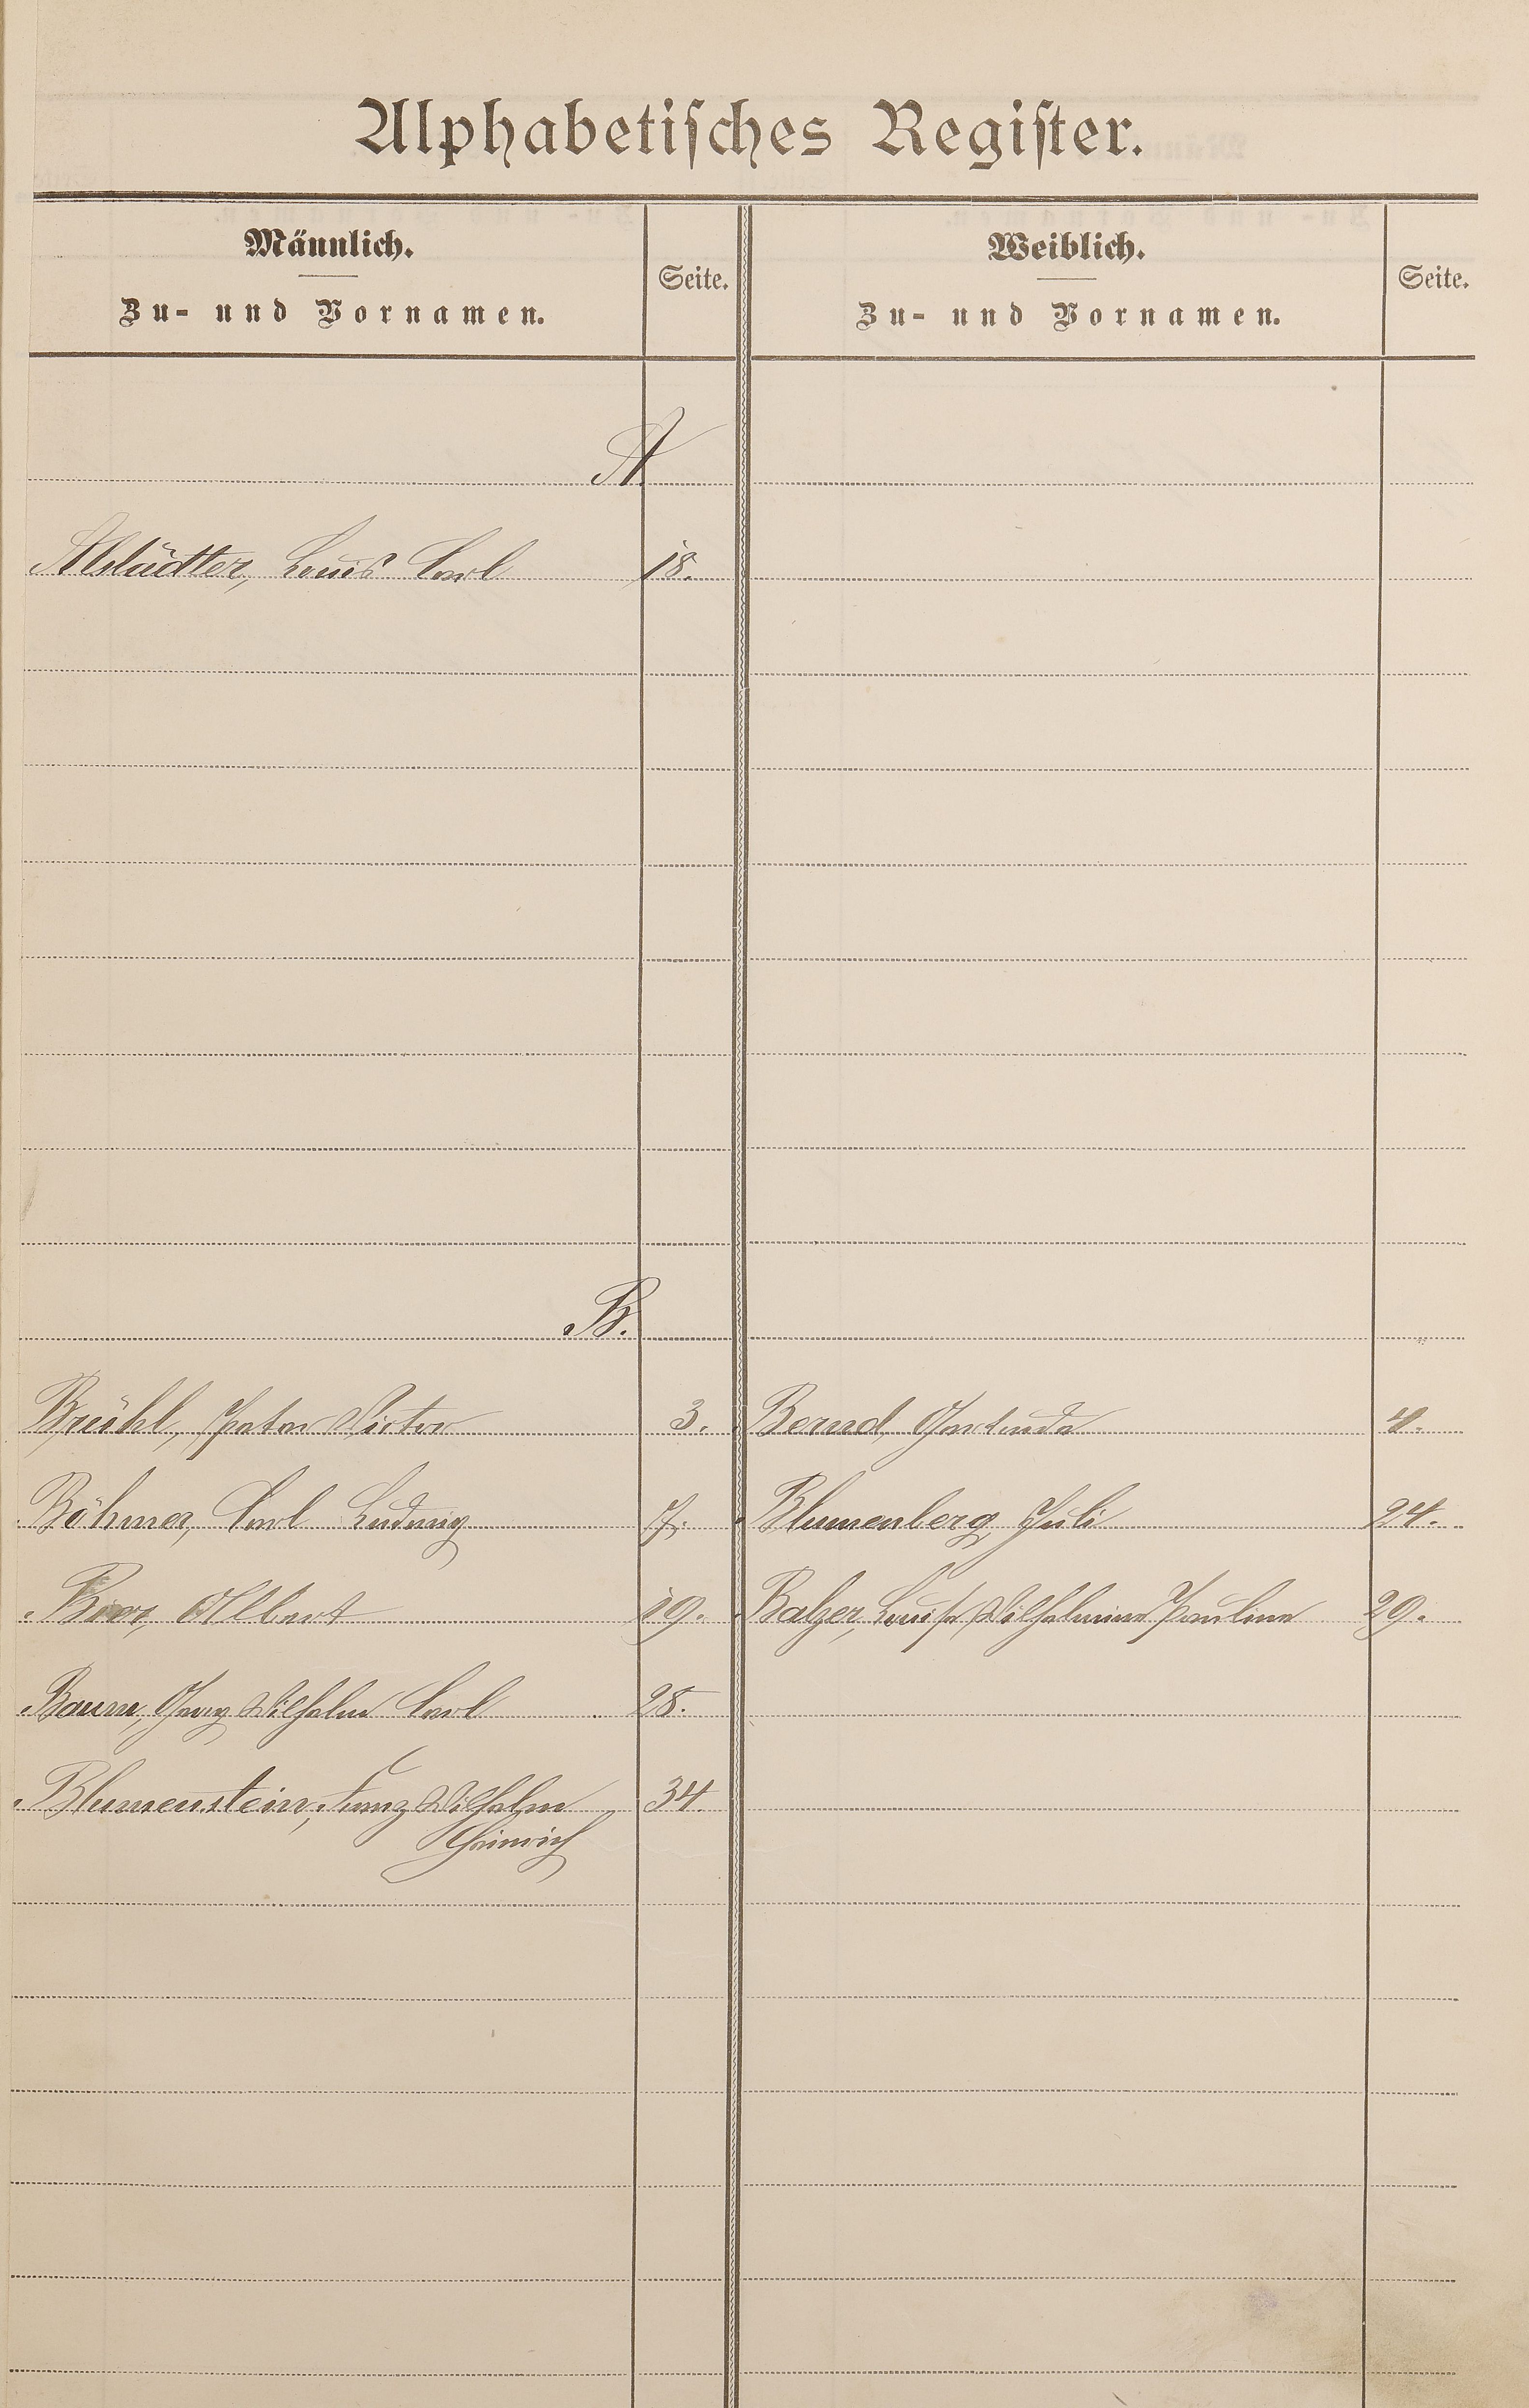 Alphabetisches Register.
Männlich.
Zu- und Vornamen.
Seite.
Weiblich.
Zu- und Vornamen.
Seite.
A.
Alstädter, Louis Carl 18.
B.
Brühl, Peter Victor 3. Bernd, Gertruda 4.
Böhmer, Carl Ludwig 17. Blumenberg, Juli 24.
Albert 19. Balzer, Louise Wilhelmine Pauline 29.
Baum, Georg Wilhelm Carl 28.
Blumenstein, Franz Wilhelm 34.
Heinrich